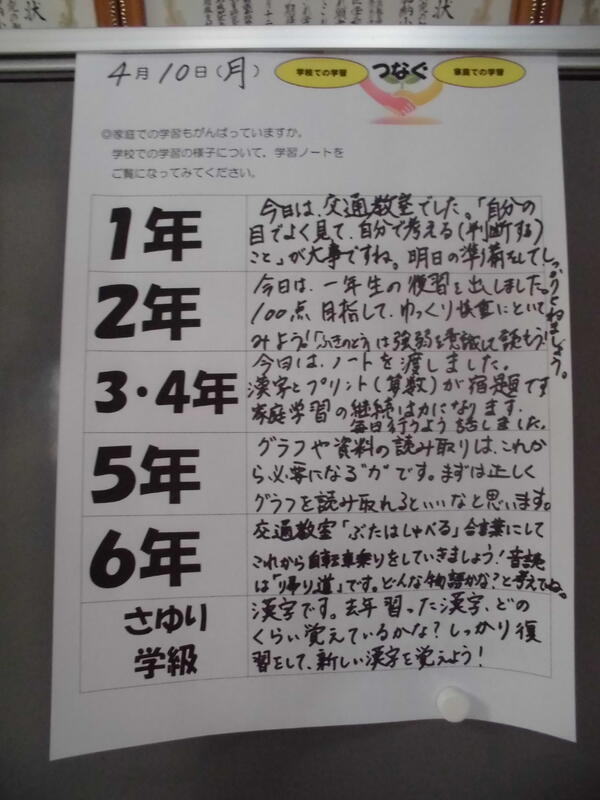 状
4月10日(月)
学校での学習 つなぐ 家庭での学習
◎家庭での学習もがんばっていますか。
学校での学習の様子について、学習ノートを
ご覧になってみてください。
1年
今日は、交通教室でした。「自分の
目でよく見て、自分で考える(判断する)
こと」が大事ですね。明日の準備をしてしっかりとねましょう。
2年
今日は、一年生の復習を出しました。
100点目指して、ゆっくり慎重にといて
みよう!「ふきのとう」は強弱を意識して読もう!
3・4年
今日は、ノートを渡しました。
漢字とプリント(算数)が宿題です
家庭学習の継続は力になります。
毎日行うよう話しました。
5年
グラフや資料の読み取りは、これか
ら必要になる"力"です。まずは正しく
グラフを読み取れるといいなと思います。
6年
交通教室「ぶたはしゃべる」合言葉にして
これから自転車乗りをしていきましょう!音読
は「帰り道」です。どんな物語かな?と考えてね。
さゆり
学級
漢字です。去年習った漢字、どの
くらい覚えているかな?しっかり復
習をして、新しい漢字を覚えよう!